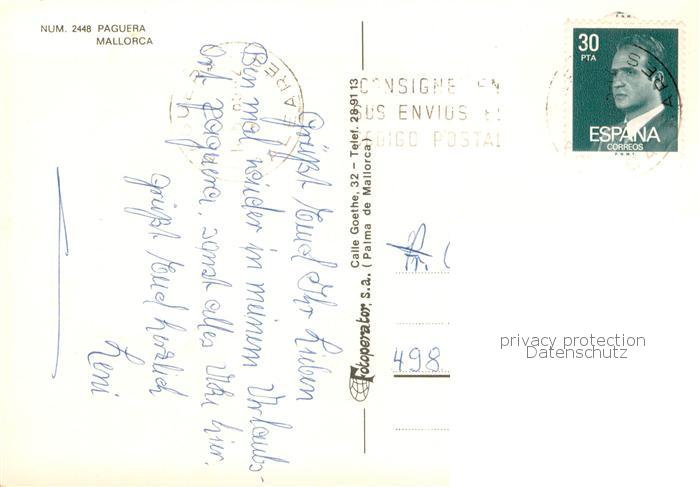 NUM. 2448 PAGUERA
MALLORCA
Grüßt Euch Ihr Lieben
Bin mal wieder in meinem Urlaubs-
Ort Paguera, sonst alles Oki hier.
Grüßt Euch herzlich
Leni
Fotoperator, s.a.
Calle Goethe, 32 – Telef. 28 91 13
(Palma de Mallorca)
CONSIGNE EN
SUS ENVIOS EL
CODIGO POSTAL
BALEARES
30
PTA
ESPAÑA
CORREOS
F.N.M.T.
498
privacy protection
Datenschutz